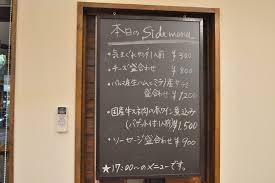 本日のSide menu
・気まぐれサラダ1人前 ¥300
・チーズ盛合わせ ¥800
・パルマ産生ハムとミラノ産サラミ
盛合わせ ¥1200
・国産牛スネ肉の赤ワイン煮込み
(バゲット付)1人前 ¥1,500
・ソーセージ盛合わせ ¥900
★17:00〜のメニューです。